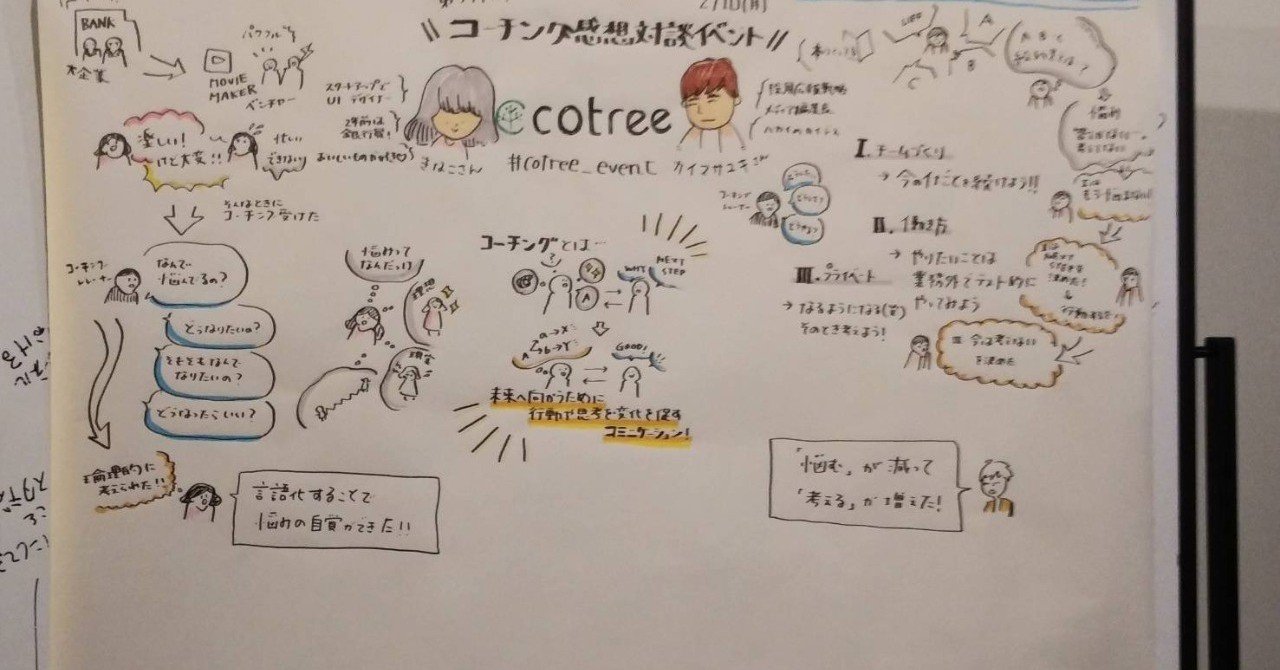 2/10(月)
コーチング感想対談イベント
BANK
大企業
MOVIE
MAKER
パワフル
ベンチャー
スタートアップで
UI デザイナー
2年前は
銀行員!
きなこさん
cotree
#cotree_event
カイフサユキさん
採用広報戦略
メディア編集長
楽しい!
けど大変!!
せい
できない
そんなときに
コーチング受けた
コーチング
トレーナー
なんで
悩んでるの?
どうなりたいの?
そもそもなんで
なりたいの?
どうなったらいい?
論理的に
考えられた!!
言語化することで
悩みの自覚ができた!!
悩みって
なんだっけ
理想
現実
コーチングとは…
?
A
WHY
NEXT
STEP
a→X
b→Y
A
GOOD!
未来へ向かうために
行動や思考を変化を促す
コミニケーション!
A
B
C
コーチング
トレーナー
I. チームづくり
→ 今のしごとを続けよう!!
II. 働き方
→ やりたいことは
業務外でテスト的に
やってみよう
III. プライベート
→ なるようになる(笑)
そのとき考えよう!
悩み
NEXT
決めた!
行動する
III 今は考えない
を決めた
「悩む」が減って
「考える」が増えた!